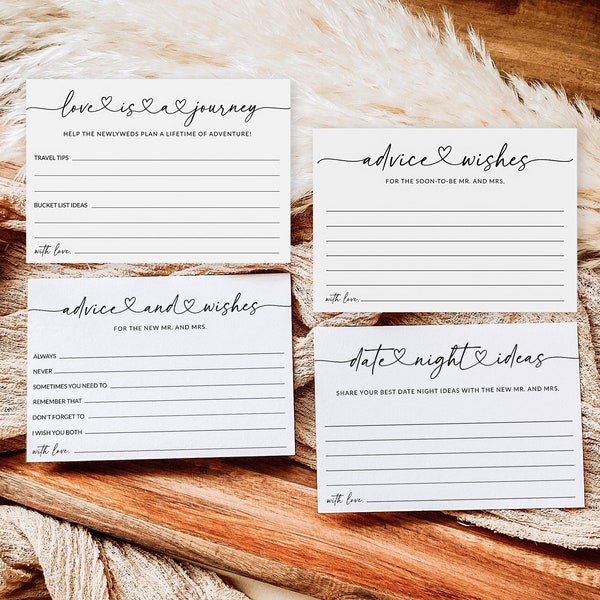 love is a journey
HELP THE NEWLYWEDS PLAN A LIFETIME OF ADVENTURE!
TRAVEL TIPS
BUCKET LIST IDEAS
with love,
advice wishes
FOR THE SOON-TO-BE MR. AND MRS.
with love,
advice and wishes
FOR THE NEW MR. AND MRS.
ALWAYS
NEVER
SOMETIMES YOU NEED TO
REMEMBER THAT
DON'T FORGET TO
I WISH YOU BOTH
with love,
date night ideas
SHARE YOUR BEST DATE NIGHT IDEAS WITH THE NEW MR. AND MRS.
with love,